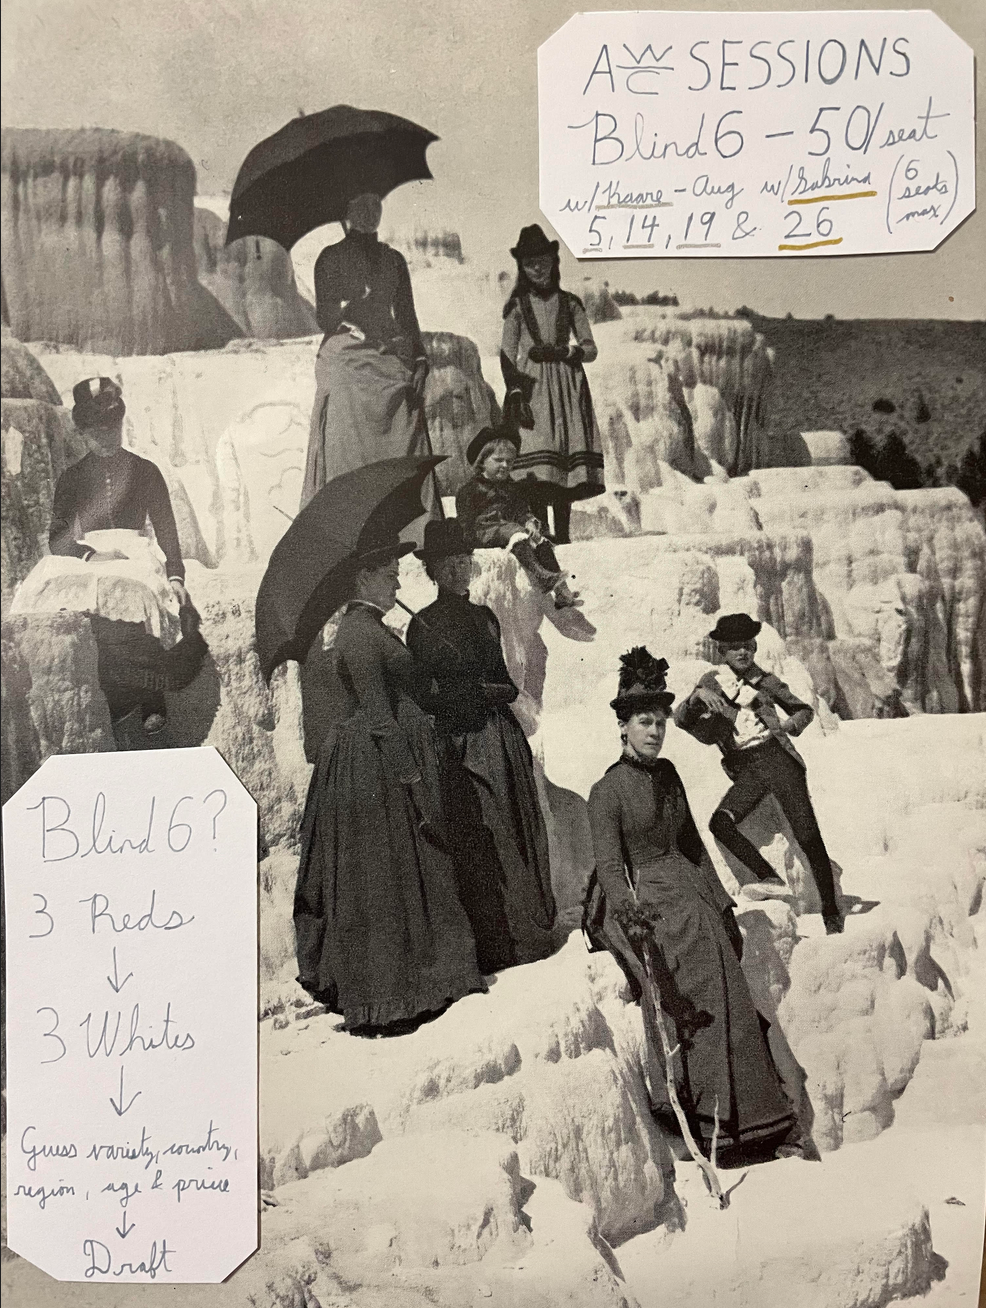 AWC SESSIONS
Blind 6 – 50/seat
w/Kaare – Aug w/Sabrina (6 seats max)
5, 14, 19 & 26
Blind 6?
3 Reds
↓
3 Whites
↓
Guess variety, country,
region, age & price
↓
Draft